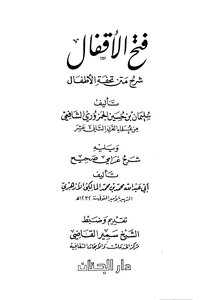 فتح الأقفال
شرح متن تحفة الأطفال
تأليف
سليمان بن حسين الجمزوري الشافعي
من علماء القرن الثاني عشر
ويليه
شرح غرامي صحيح
تأليف
أبي عبدالله محمد بن محمد المالكي الأزهري
الشهير بالأمير المتوفى سنة ١٢٣٢هـ
تقديم وضبط
الشيخ سمير القاضي
مركز الخدمات والأبحاث الثقافية
دار الجنان